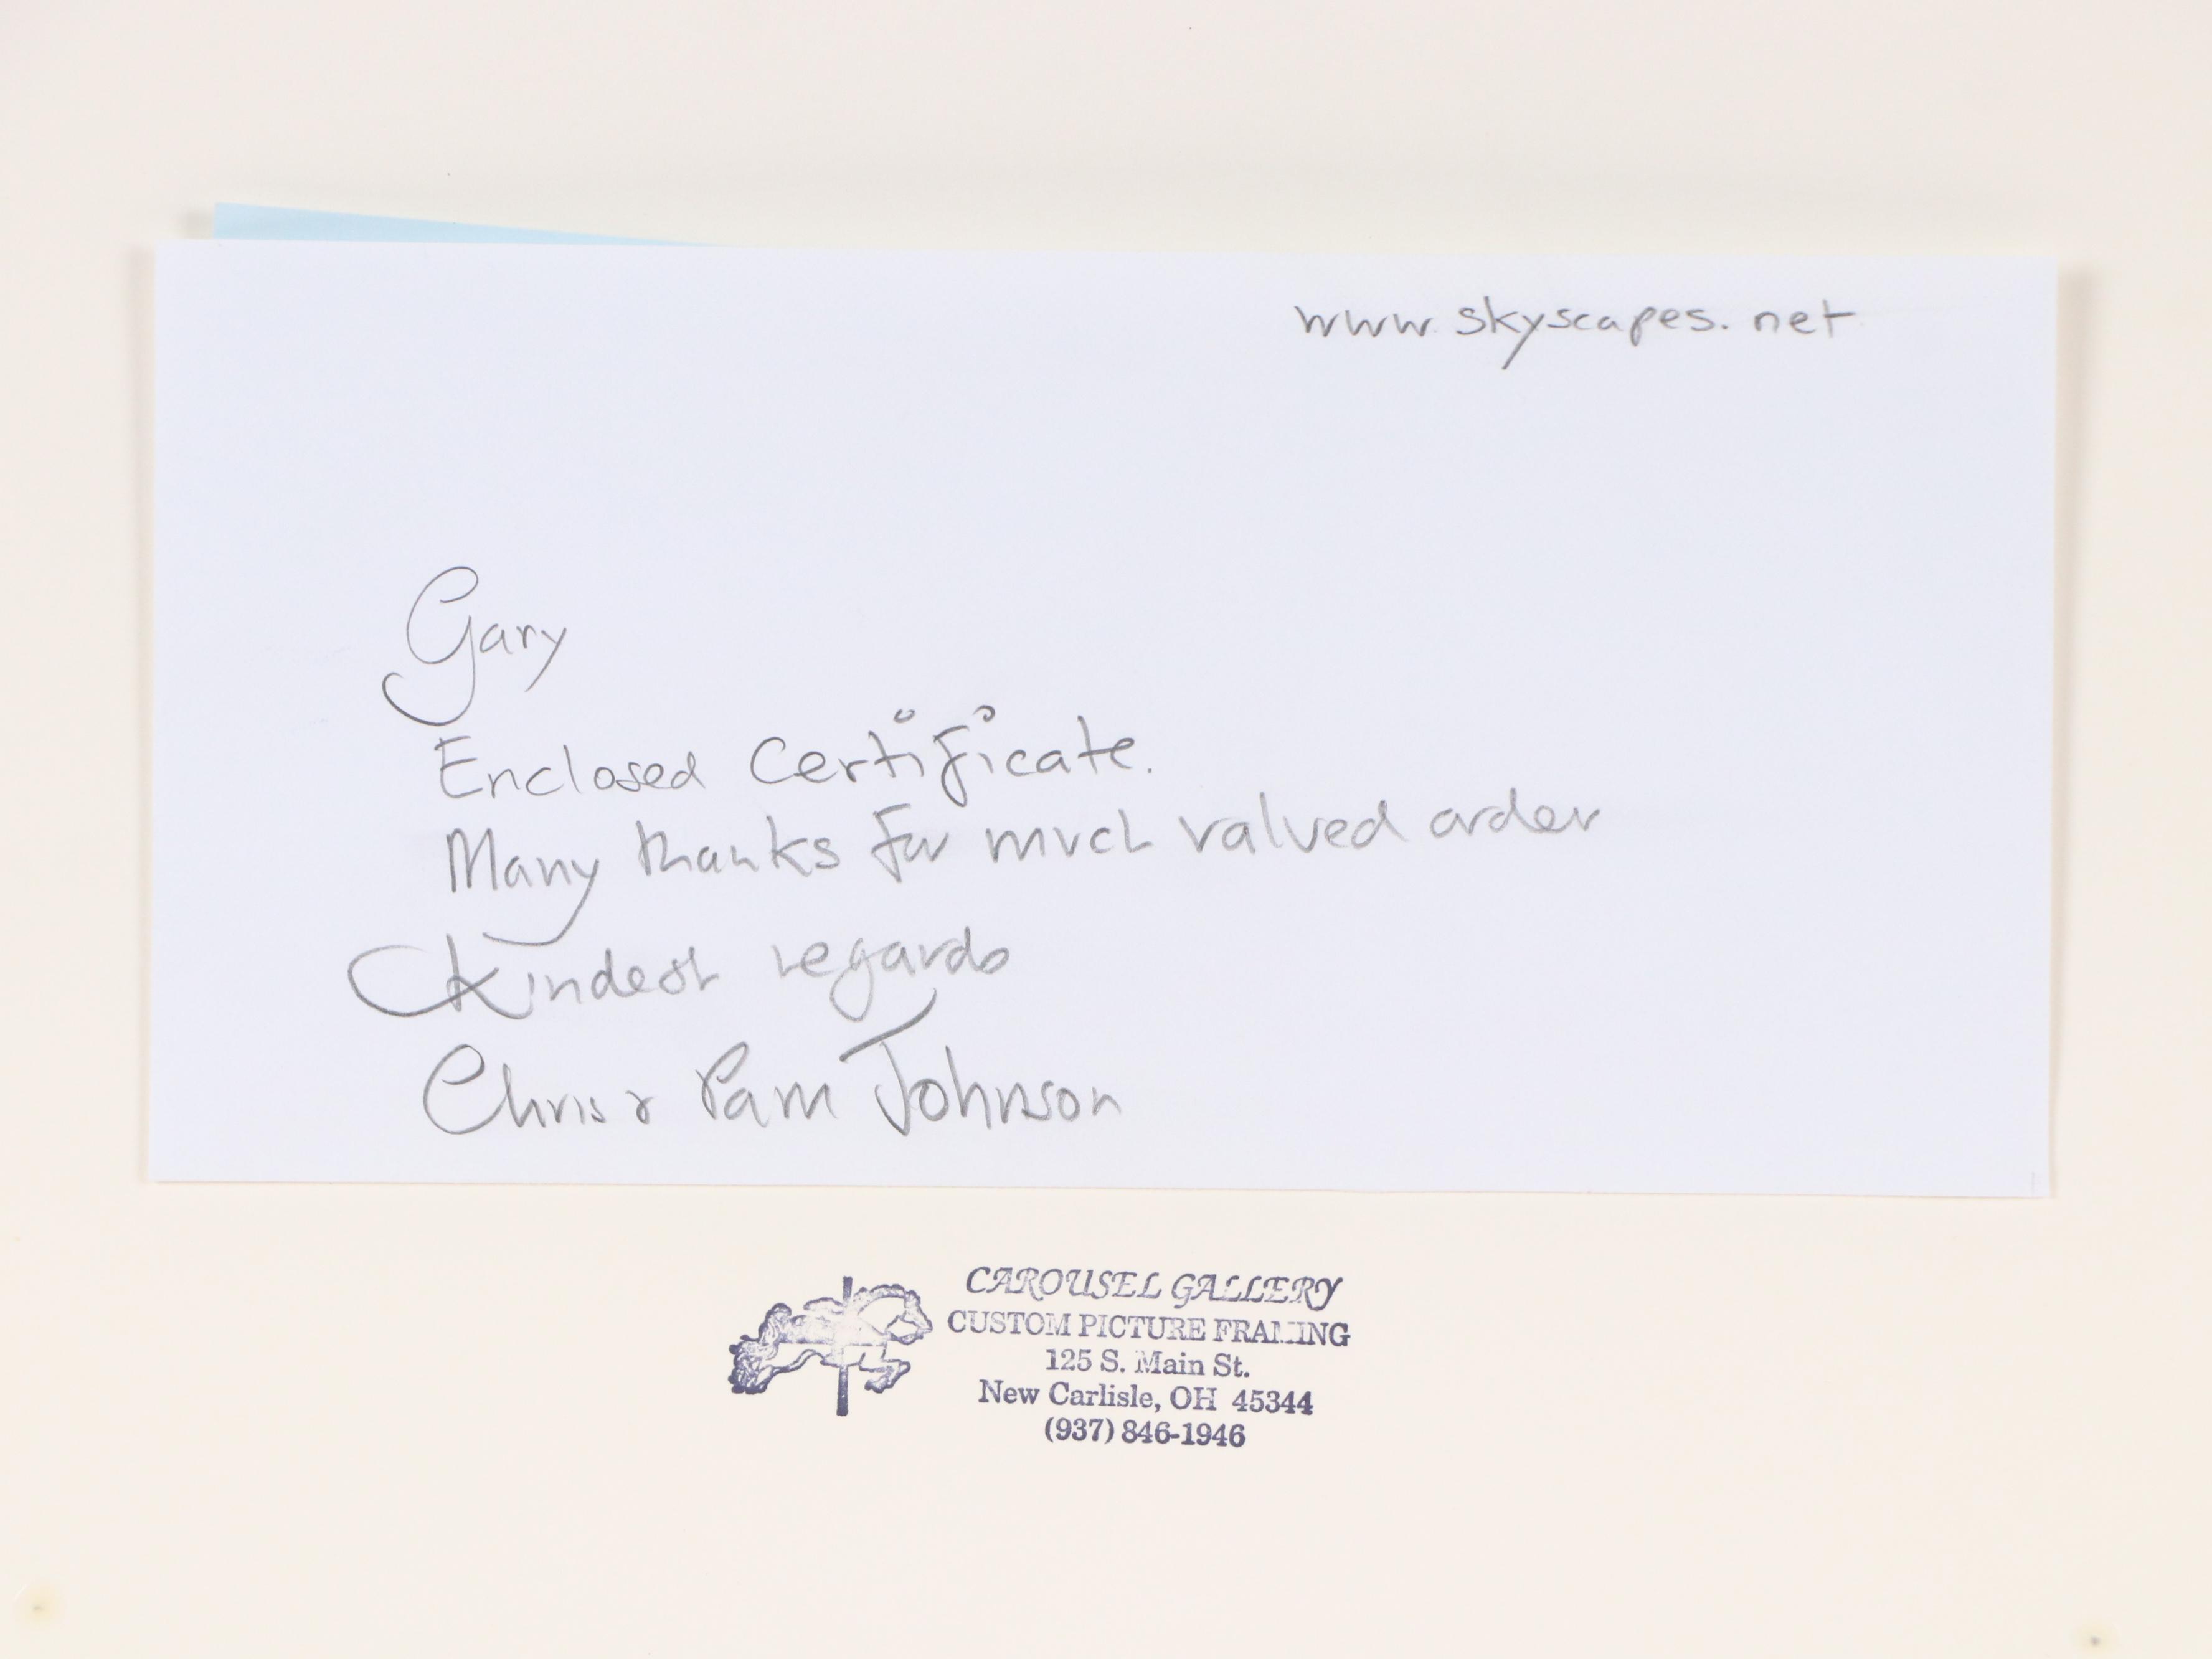 www.skyscapes.net
Gary
Enclosed Certificate.
Many thanks for much valued order
Kindest regards
Chris & Pam Johnson
CAROUSEL GALLERY
CUSTOM PICTURE FRAMING
125 S. Main St.
New Carlisle, OH 45344
(937) 846-1946